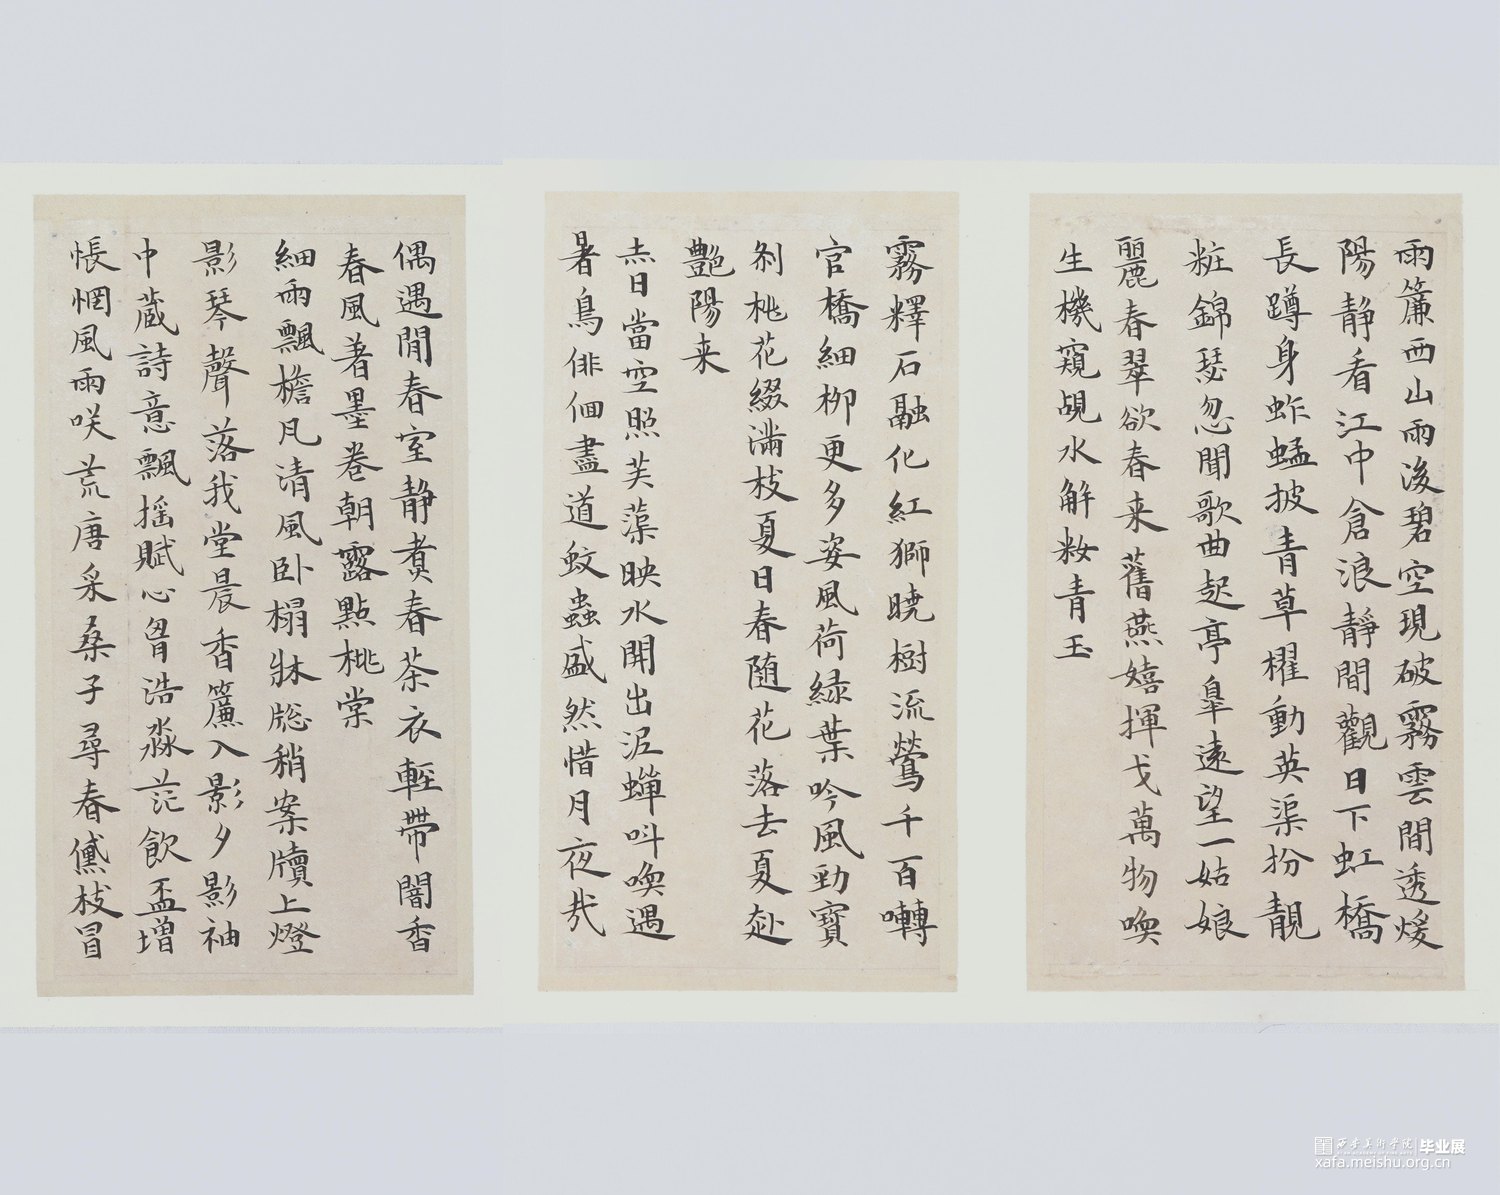 雨簾西山雨後碧空現破霧雲間透煖
陽静看江中倉浪靜間觀日下虹橋
長蹲身蚱蜢披青草櫂動英渠扮靚
粧錦瑟忽聞歌曲起亭皐遠望一姑娘
麗春翠欲春来舊燕嬉揮戈萬物喚
生機窺覘水解妝青玉
霧釋石融化紅獅曉樹流鶯千百囀
官橋細柳更多姿風荷緑葉吟風勁寶
剎桃花綴滿枝夏日春随花落去夏赴
艷陽来
赤日當空照芙蕖映水開出泥蟬叫喚遇
暑鳥俳佪盡道蚊蟲盛然惜月夜哉
偶遇閒春室静煑春茶衣輕帶闇香
春風著墨卷朝露點桃棠
細雨飄檐凡清風卧榻牀牕稍案牘上燈
影琴聲落我堂晨香簾入影夕影袖
中蔵詩意飄摇賦心胷浩淼茫飲盃增
悵惘風雨咲荒唐采桑子尋春黛枝冒
西安美術学院 毕业展
XI'AN ACADEMY OF FINE ARTS
xafa.meishu.org.cn